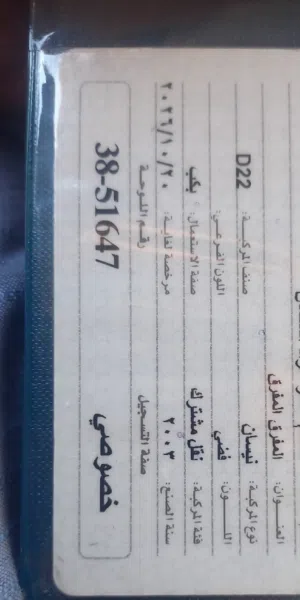 العنوان: المفرق المفرق
نوع المركبة: نيسان صنف المركبة: D22
اللون: فضي اللون الفرعي:
فئة المركبة: نقل مشترك صفة الاستعمال: بكب
سنة الصنع: ٢٠٠٣ مرخصة لغاية: ٢٠٢٦/١٠/٢٠
صفة التسجيل رقم اللوحة
خصوصي 38-51647